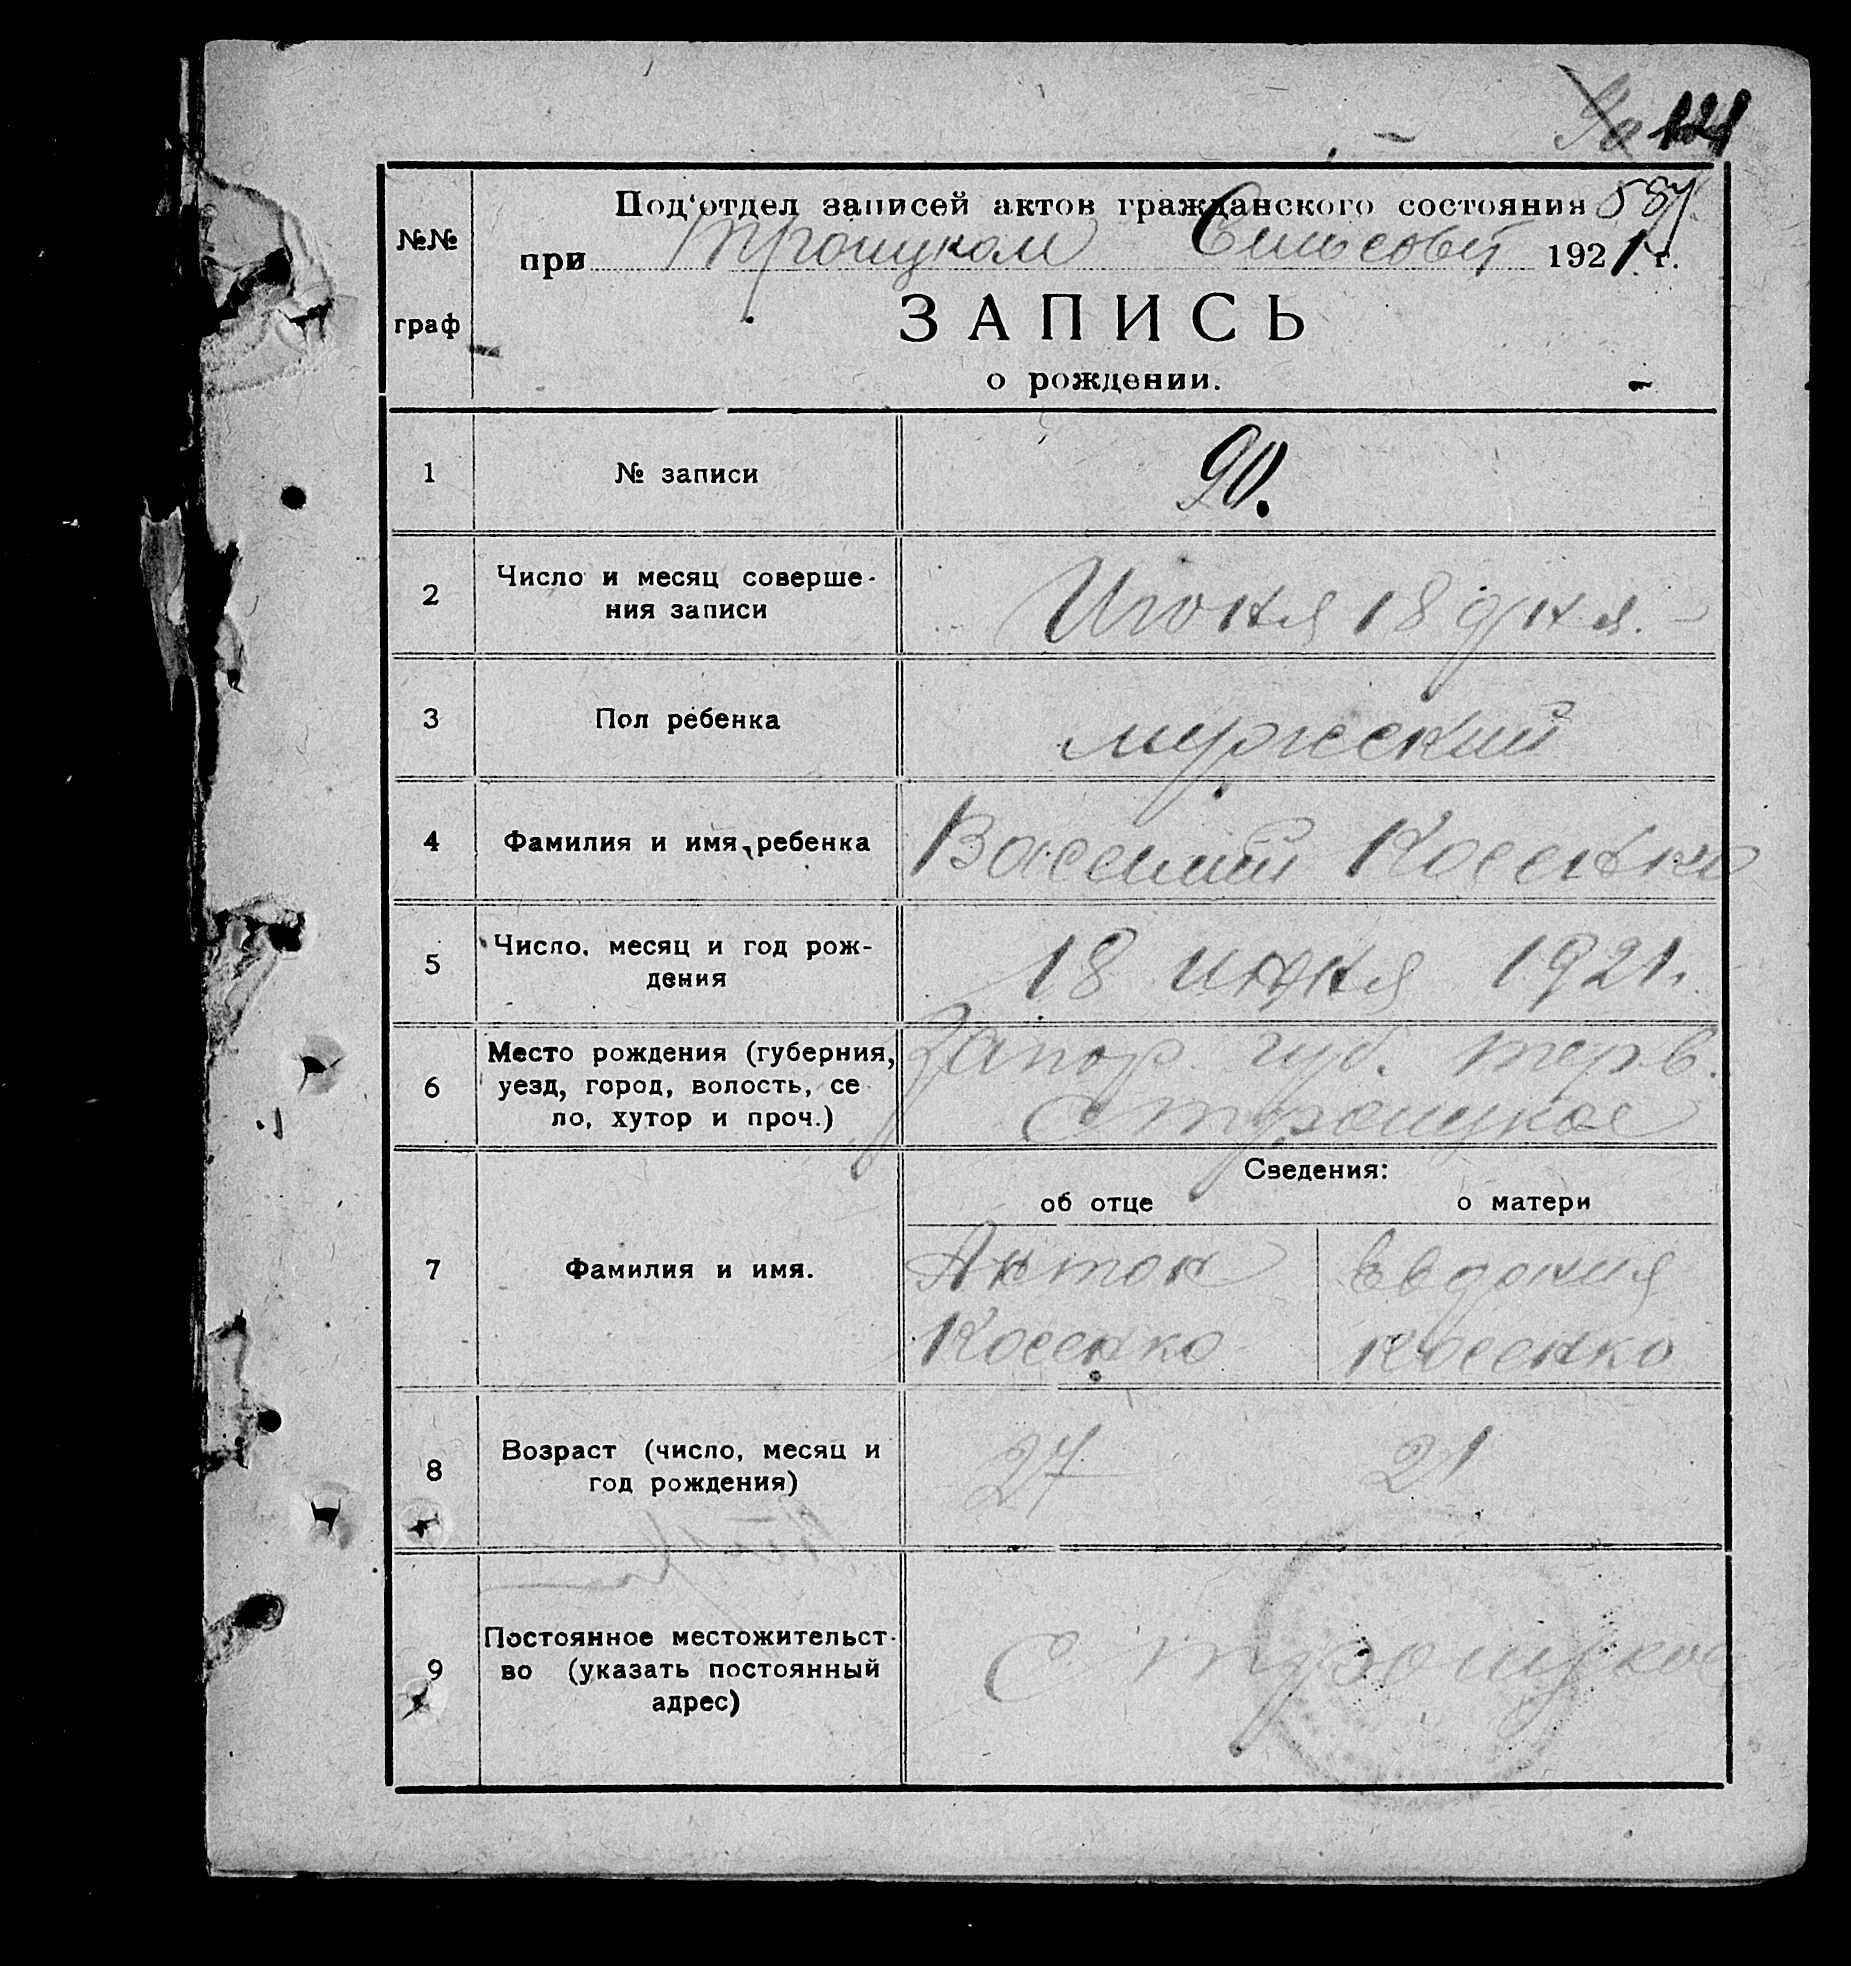 121
Под'отдел записей актов гражданского состояния
№№ при Троицком Сельсовет 1921 г.
граф
ЗАПИСЬ
о рождении.
1 № записи 90.
2 Число и месяц соверше-
ния записи Июня 18 дня.
3 Пол ребенка мужеский
4 Фамилия и имя ребенка Василий Косенко
5 Число, месяц и год рож-
дения 18 июня 1921.
6 Место рождения (губерния,
уезд, город, волость, се
ло, хутор и проч.)
Запор. губ.
с Троицкое
Сведения:
об отце о матери
7 Фамилия и имя.
Антон Евдокия
Косенко Косенко
8 Возраст (число, месяц и
год рождения)
27 21
9 Постоянное местожительст-
во (указать постоянный
адрес)
с Троицкое